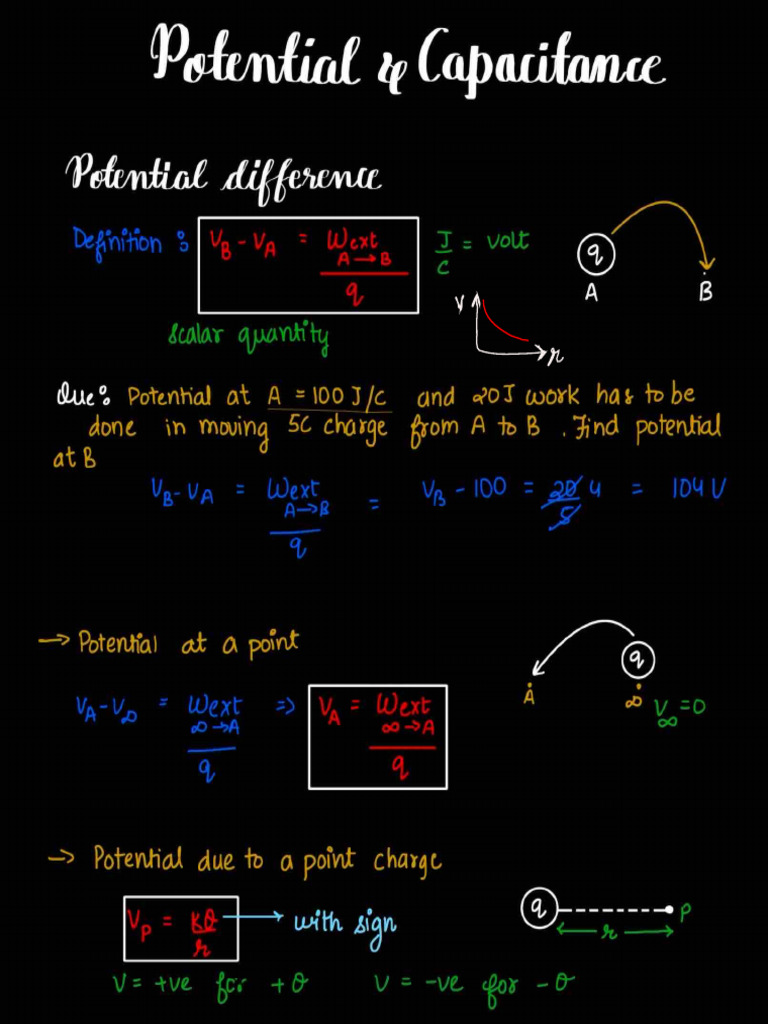 Potential & Capacitance
Potential difference
Definition : V_B - V_A = W_ext A→B / q J/C = volt
q
A B
Scalar quantity
V
r
Que: Potential at A = 100 J/C and 20J work has to be
done in moving 5C charge from A to B . Find potential
at B
V_B - V_A = W_ext A→B / q = V_B - 100 = 20/5 4 = 104 V
→ Potential at a point
q
A ∞ V_∞ = 0
V_A - V_∞ = W_ext ∞→A / q ⇒ V_A = W_ext ∞→A / q
→ Potential due to a point charge
V_P = KQ/r → with sign
q P
r
V = +ve for + Q V = -ve for - Q